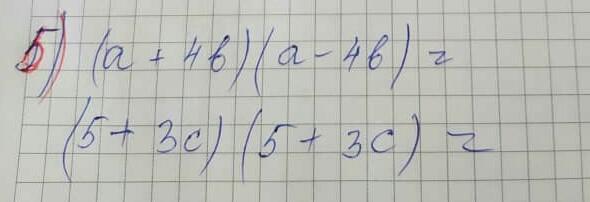 5) (a + 4b)(a - 4b) =
(5 + 3c)(5 + 3c) =